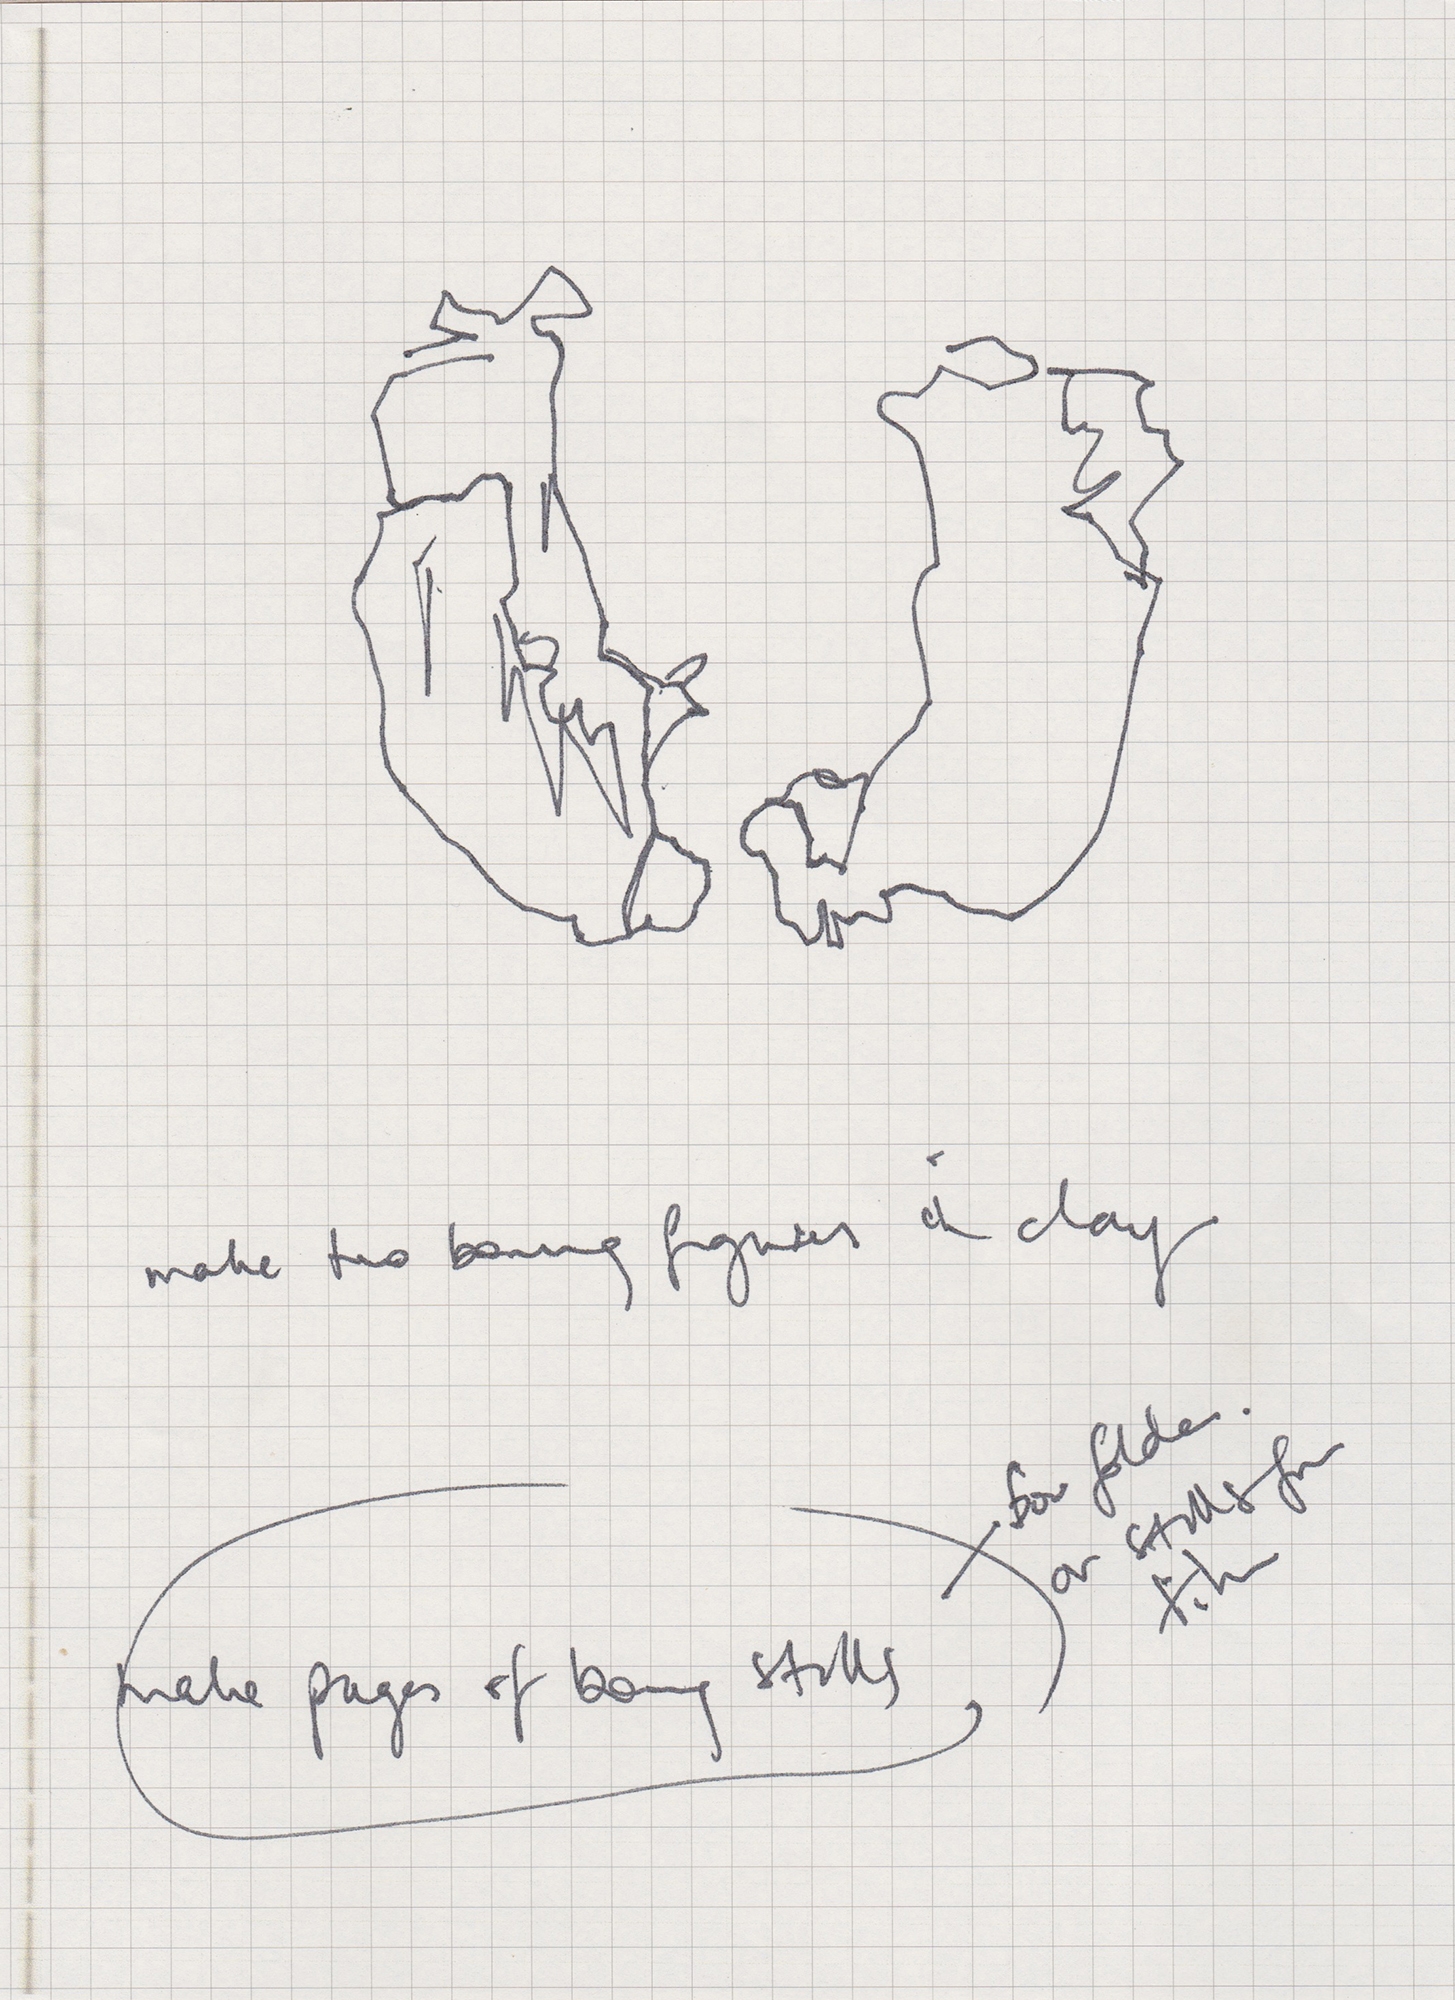 make two bowing figures in clay
for folder.
or stills for
film
make pages of bowing stills